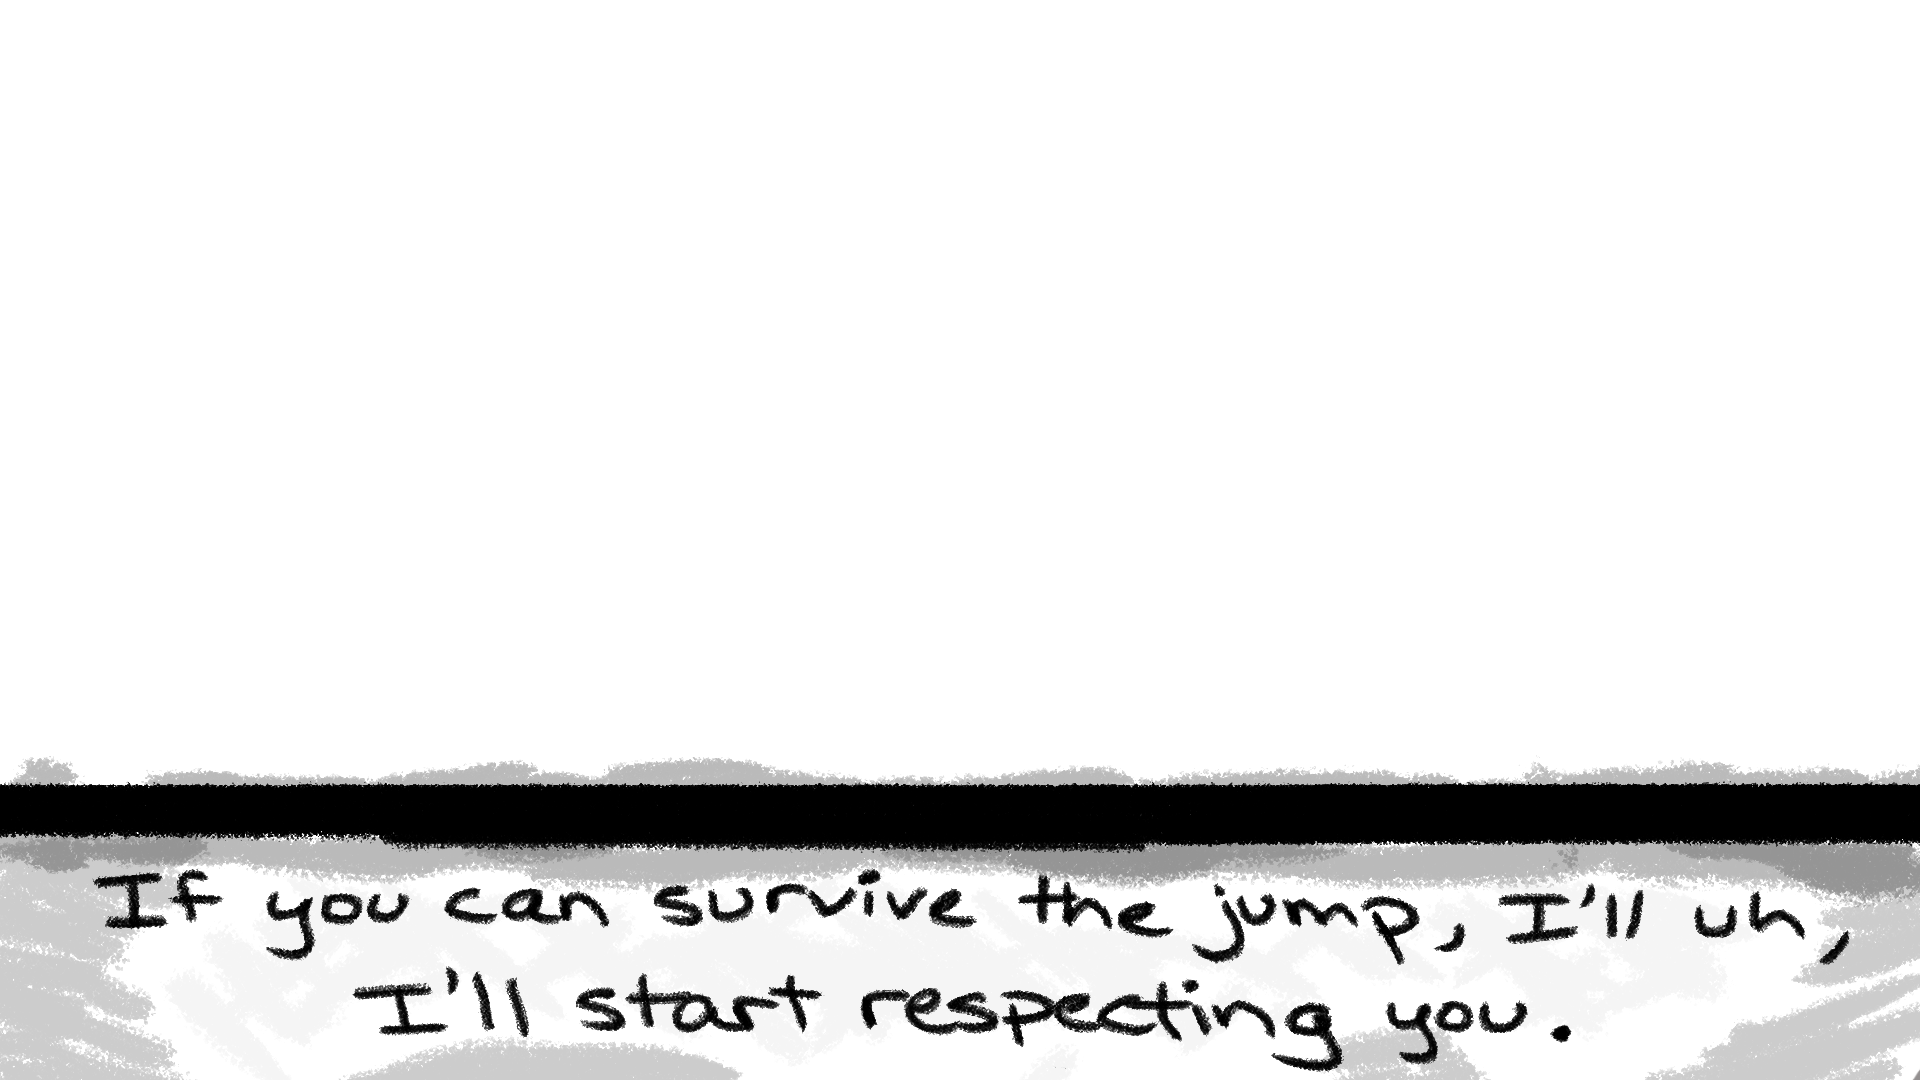 If you can survive the jump, I'll uh,
I'll start respecting you.